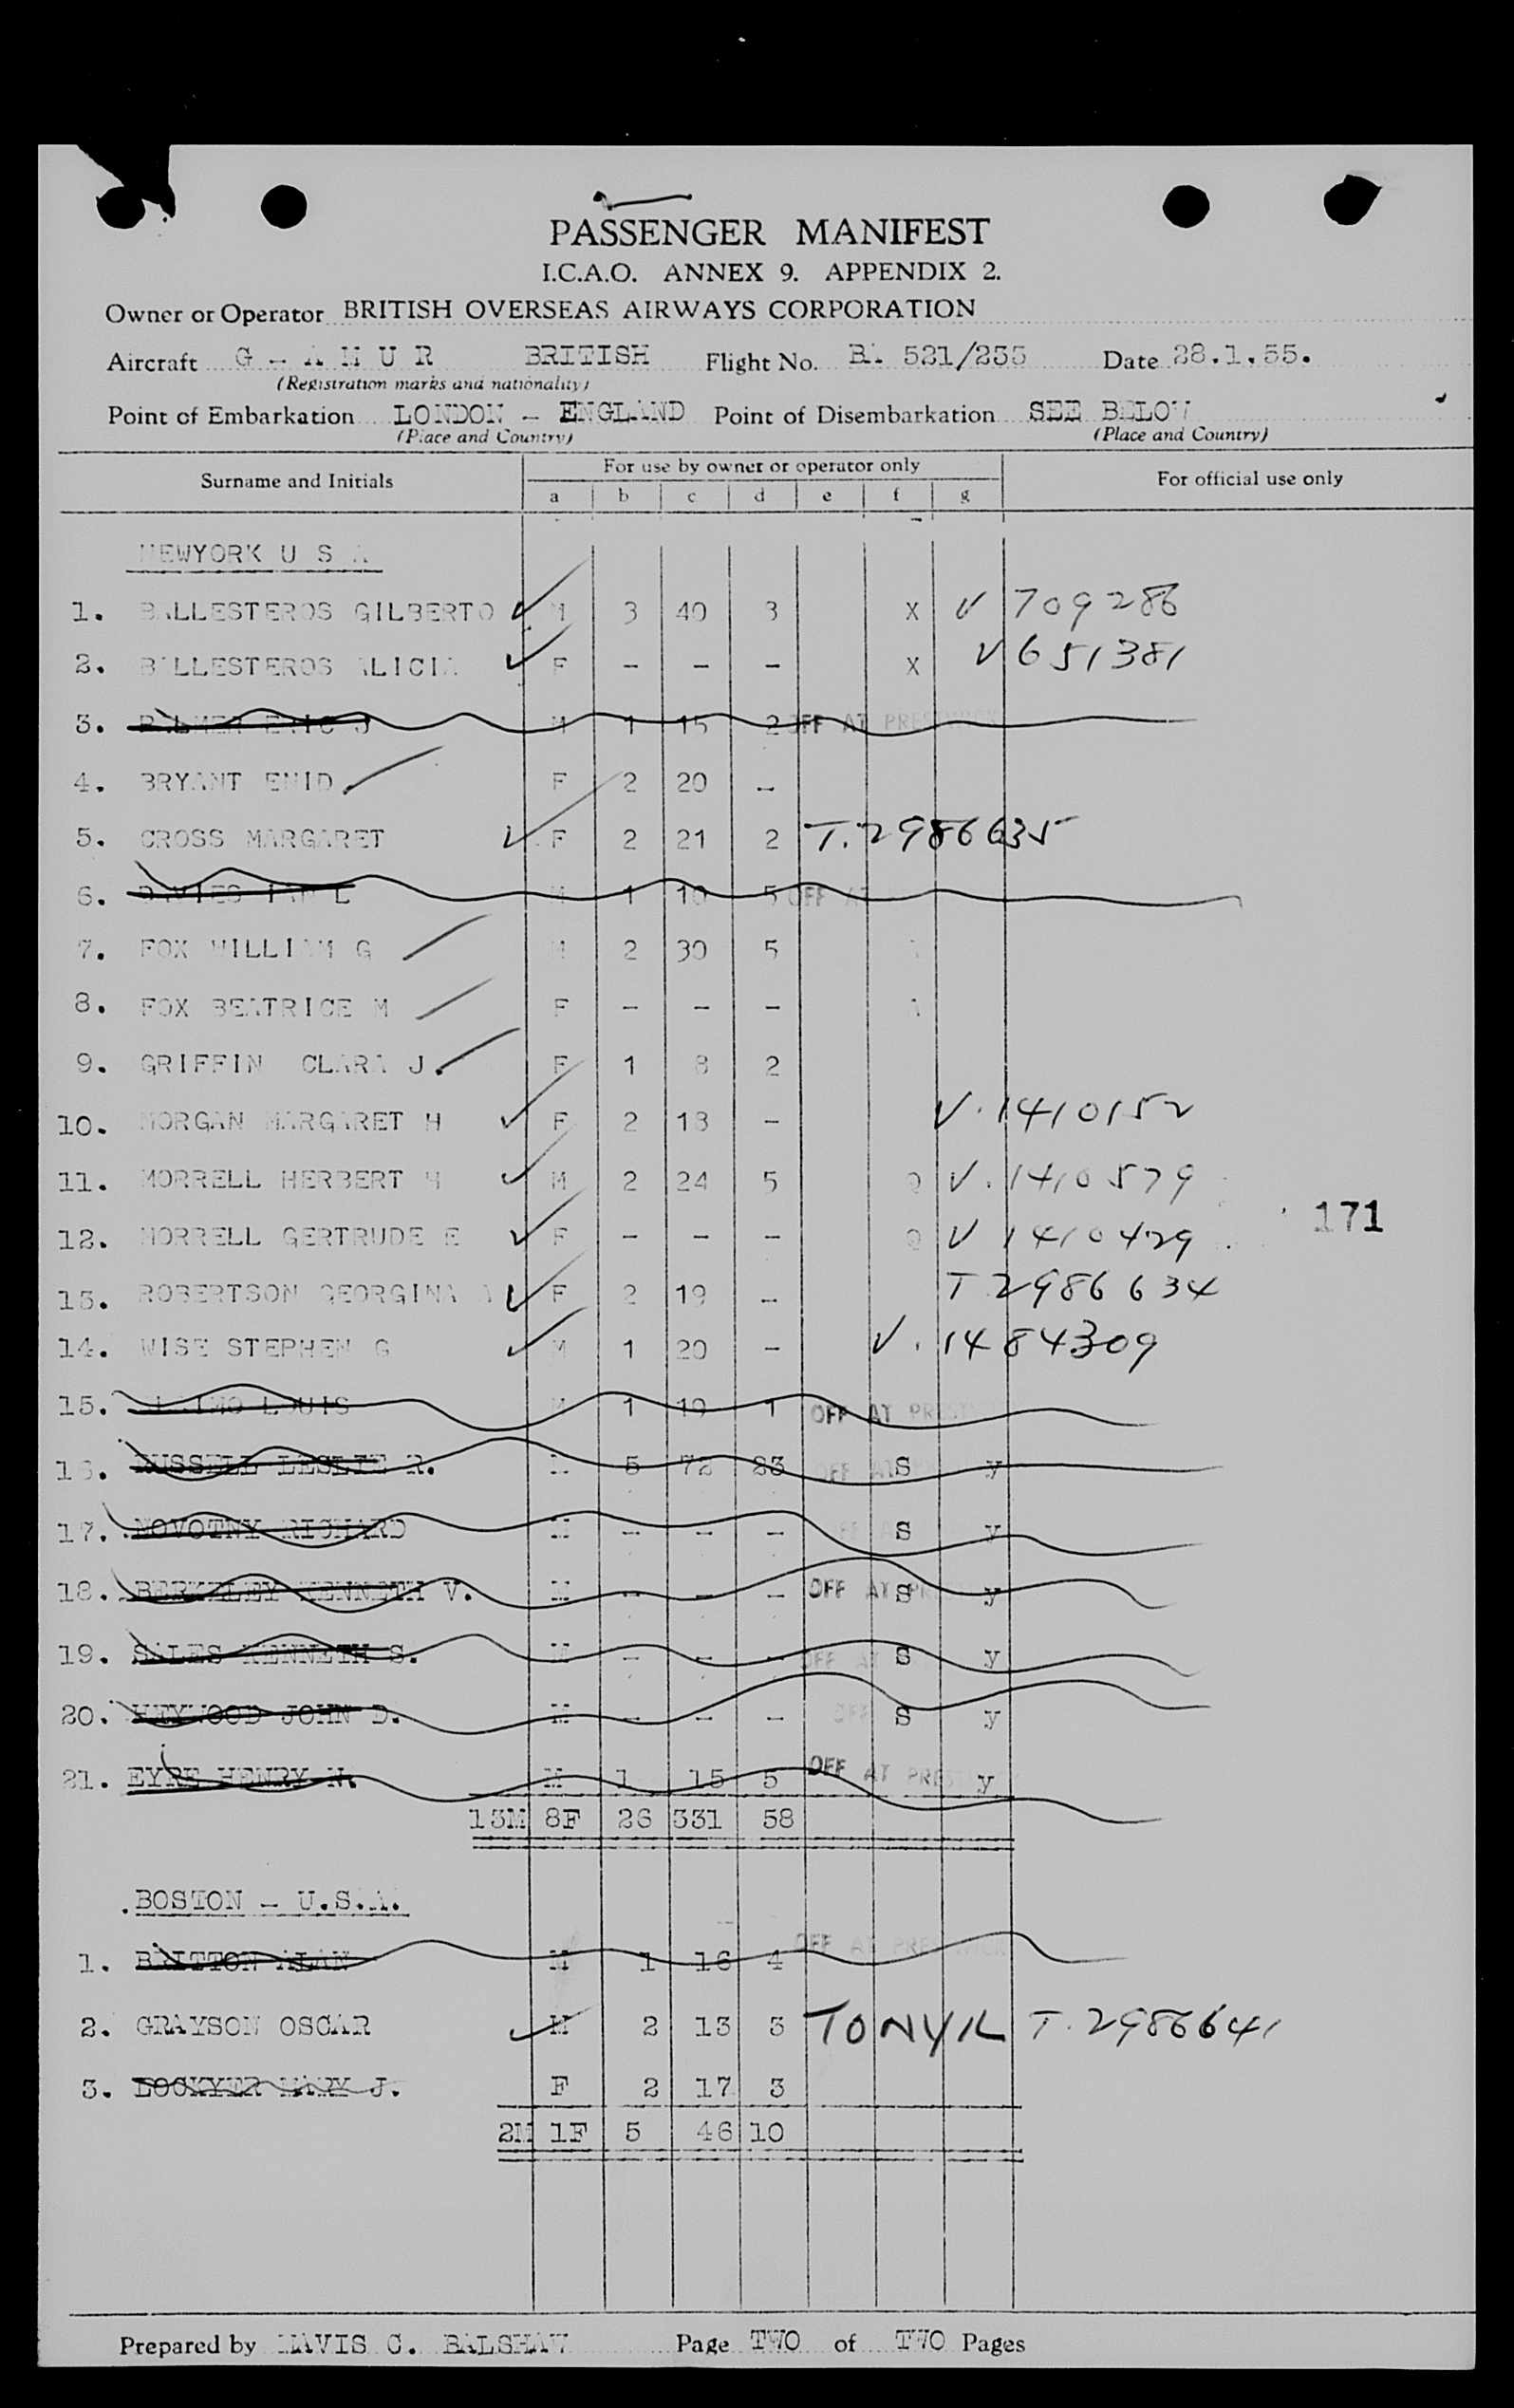 PASSENGER MANIFEST
I.C.A.O. ANNEX 9. APPENDIX 2.
Owner or Operator BRITISH OVERSEAS AIRWAYS CORPORATION
Aircraft G - A H U R BRITISH Flight No. BA 521/255 Date 28.1.55.
(Registration marks and nationality)
Point of Embarkation LONDON - ENGLAND Point of Disembarkation SEE BELOW
(Place and Country) (Place and Country)
Surname and Initials For use by owner or operator only For official use only
a b c d e f g
NEWYORK U S A
1. BALLESTEROS GILBERTO M 3 40 3 X V 709286
2. BALLESTEROS ALICIA F - - - X V 651381
3. PALMER ERIC J M 1 15 2 OFF AT PRESTWICK
4. BRYANT ENID F 2 20 -
5. CROSS MARGARET F 2 21 2 T. 2986635
6. DAVIES IAN L M 1 10 5 OFF AT
7. FOX WILLIAM G M 2 30 5
8. FOX BEATRICE M F - - -
9. GRIFFIN CLARA J. F 1 8 2
10. MORGAN MARGARET H F 2 18 - V. 1410152
11. MORRELL HERBERT H M 2 24 5 Q V. 1410579
12. MORRELL GERTRUDE E F - - - Q V 1410429
171
13. ROBERTSON GEORGINA F 2 19 - T 2986634
14. WISE STEPHEN G M 1 20 - V. 1484309
15. LOUIS M 1 19 1 OFF AT PREST
16. RUSSELL LESLIE R. M 5 72 23 OFF AT S y
17. NOVOTNY RICHARD M - - - OFF S y
18. BERKELEY KENNETH V. M - - - OFF AT PR S y
19. SALES KENNETH S. M - - - OFF AT S y
20. HEYWOOD JOHN D. M - - - OFF S y
21. EYRE HENRY N. M 1 15 5 OFF AT PRES y
13M 8F 26 331 58
BOSTON - U.S.A.
1. BRITTON ALAN M 1 16 4 OFF AT PRESTWICK
2. GRAYSON OSCAR M 2 13 3 TO NYK T. 2986641
3. LOCKYER MARY J. F 2 17 3
2M 1F 5 46 10
Prepared by MAVIS C. BALSHAW Page TWO of TWO Pages